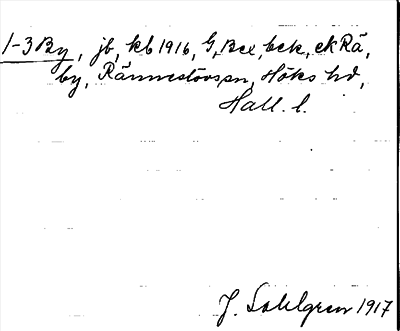 1-3 By, jb, kb 1916, G, Bex, bck, ekRå,
by, Rännestövs sn, Höks hd,
Hall. l.
J. Sahlgren 1917